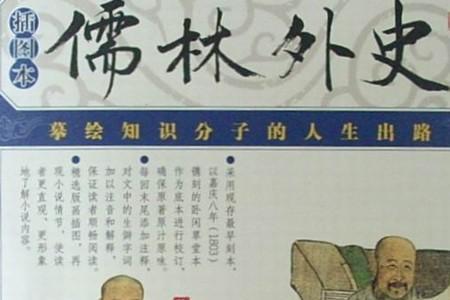 插图本
儒林外史
摹绘知识分子的人生出路
●采用现存最早刻本，
以嘉庆八年（1803）
镌刻的卧闲草堂本
作为底本进行校订，
确保原著原汁原味。
●每回末尾添加注释，
对文中的生僻字词
加以注音和解释，
保证读者顺畅阅读。
●精选版画插图，再
现小说情节，使读
者更直观、更形象
地了解小说内容。